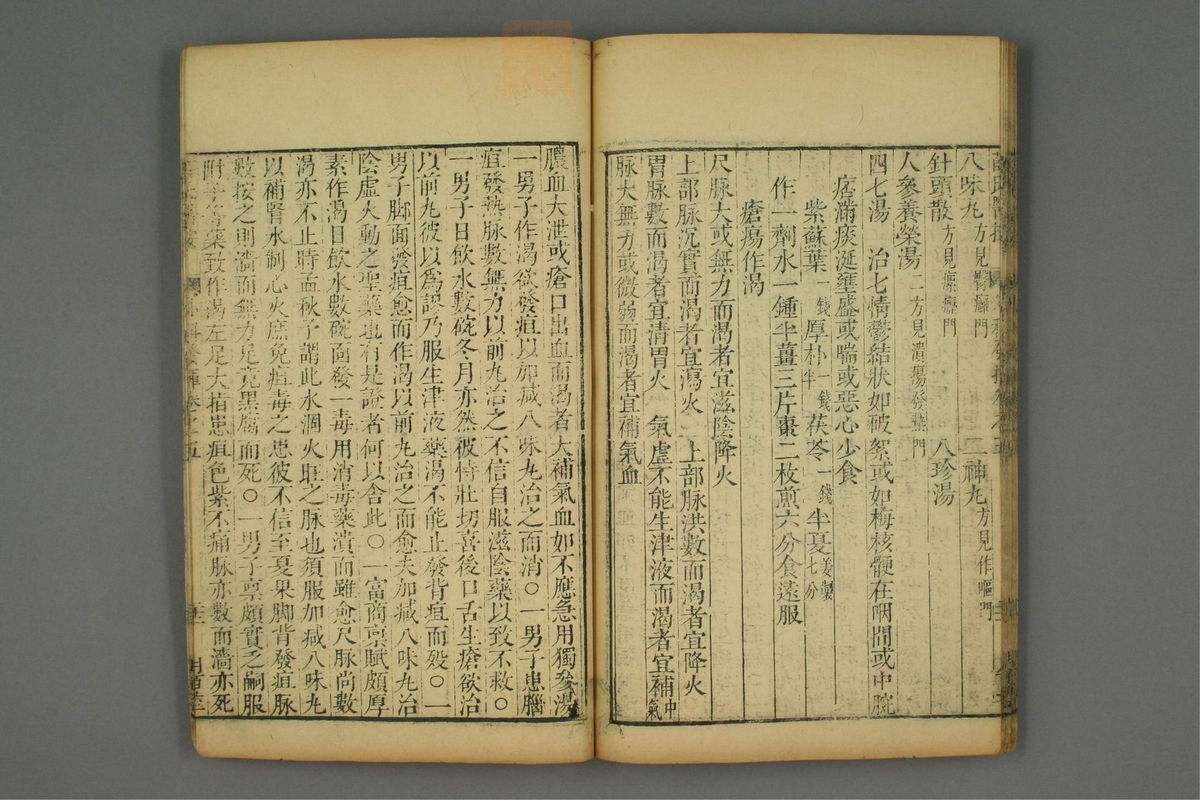 八味丸方見臀癰門　二神丸方見作嘔門
針頭散方見瘰癧門　八珍湯
人參養榮湯二方見潰瘍發熱門
四七湯　治七情鬱結狀如破絮或如梅核骾在咽間或中脘
痞滿痰涎壅盛或喘或惡心少食
紫蘇葉一錢厚朴一錢半茯苓一錢半夏姜製七分
作一劑水一鍾半薑三片棗二枚煎六分食遠服
瘡瘍作渴
尺脉大或無力而渴者宜滋陰降火
上部脉沉實而渴者宜瀉火　上部脉洪數而渴者宜降火
胃脉數而渴者宜清胃火　氣虛不能生津液而渴者宜補中氣
脉大無力或微弱而渴者宜補氣血
膿血大泄或瘡口出血而渴者大補氣血如不應急用獨參湯
一男子作渴欲發疽以加减八味丸治之而消○一男子患腦
疽發熱脉數無力以前丸治之不信自服滋陰藥以致不救○
一男子日飲水數碗冬月亦然彼恃壯切喜後口舌生瘡欲治
以前丸彼以爲謬乃服生津液藥渴不能止發背疽而殁○一
男子脚面發疽愈而作渴以前丸治之而愈夫加减八味丸治
陰虛火動之聖藥也有是證者何以舍此○一富商禀賦頗厚
素作渴日飲水數碗面發一毒用消毒藥潰而雖愈尺脉尚數
渴亦不止時孟秋予謂此水涸火旺之脉也須服加减八味丸
以補腎水制心火庶免疽毒之患彼不信至夏果脚背發疽脉
數按之則濇而無力足竟黑腐而死○一男子禀頗實乏嗣服
附子等藥致作渴左足大指患疽色紫不痛脉亦數而濇亦死